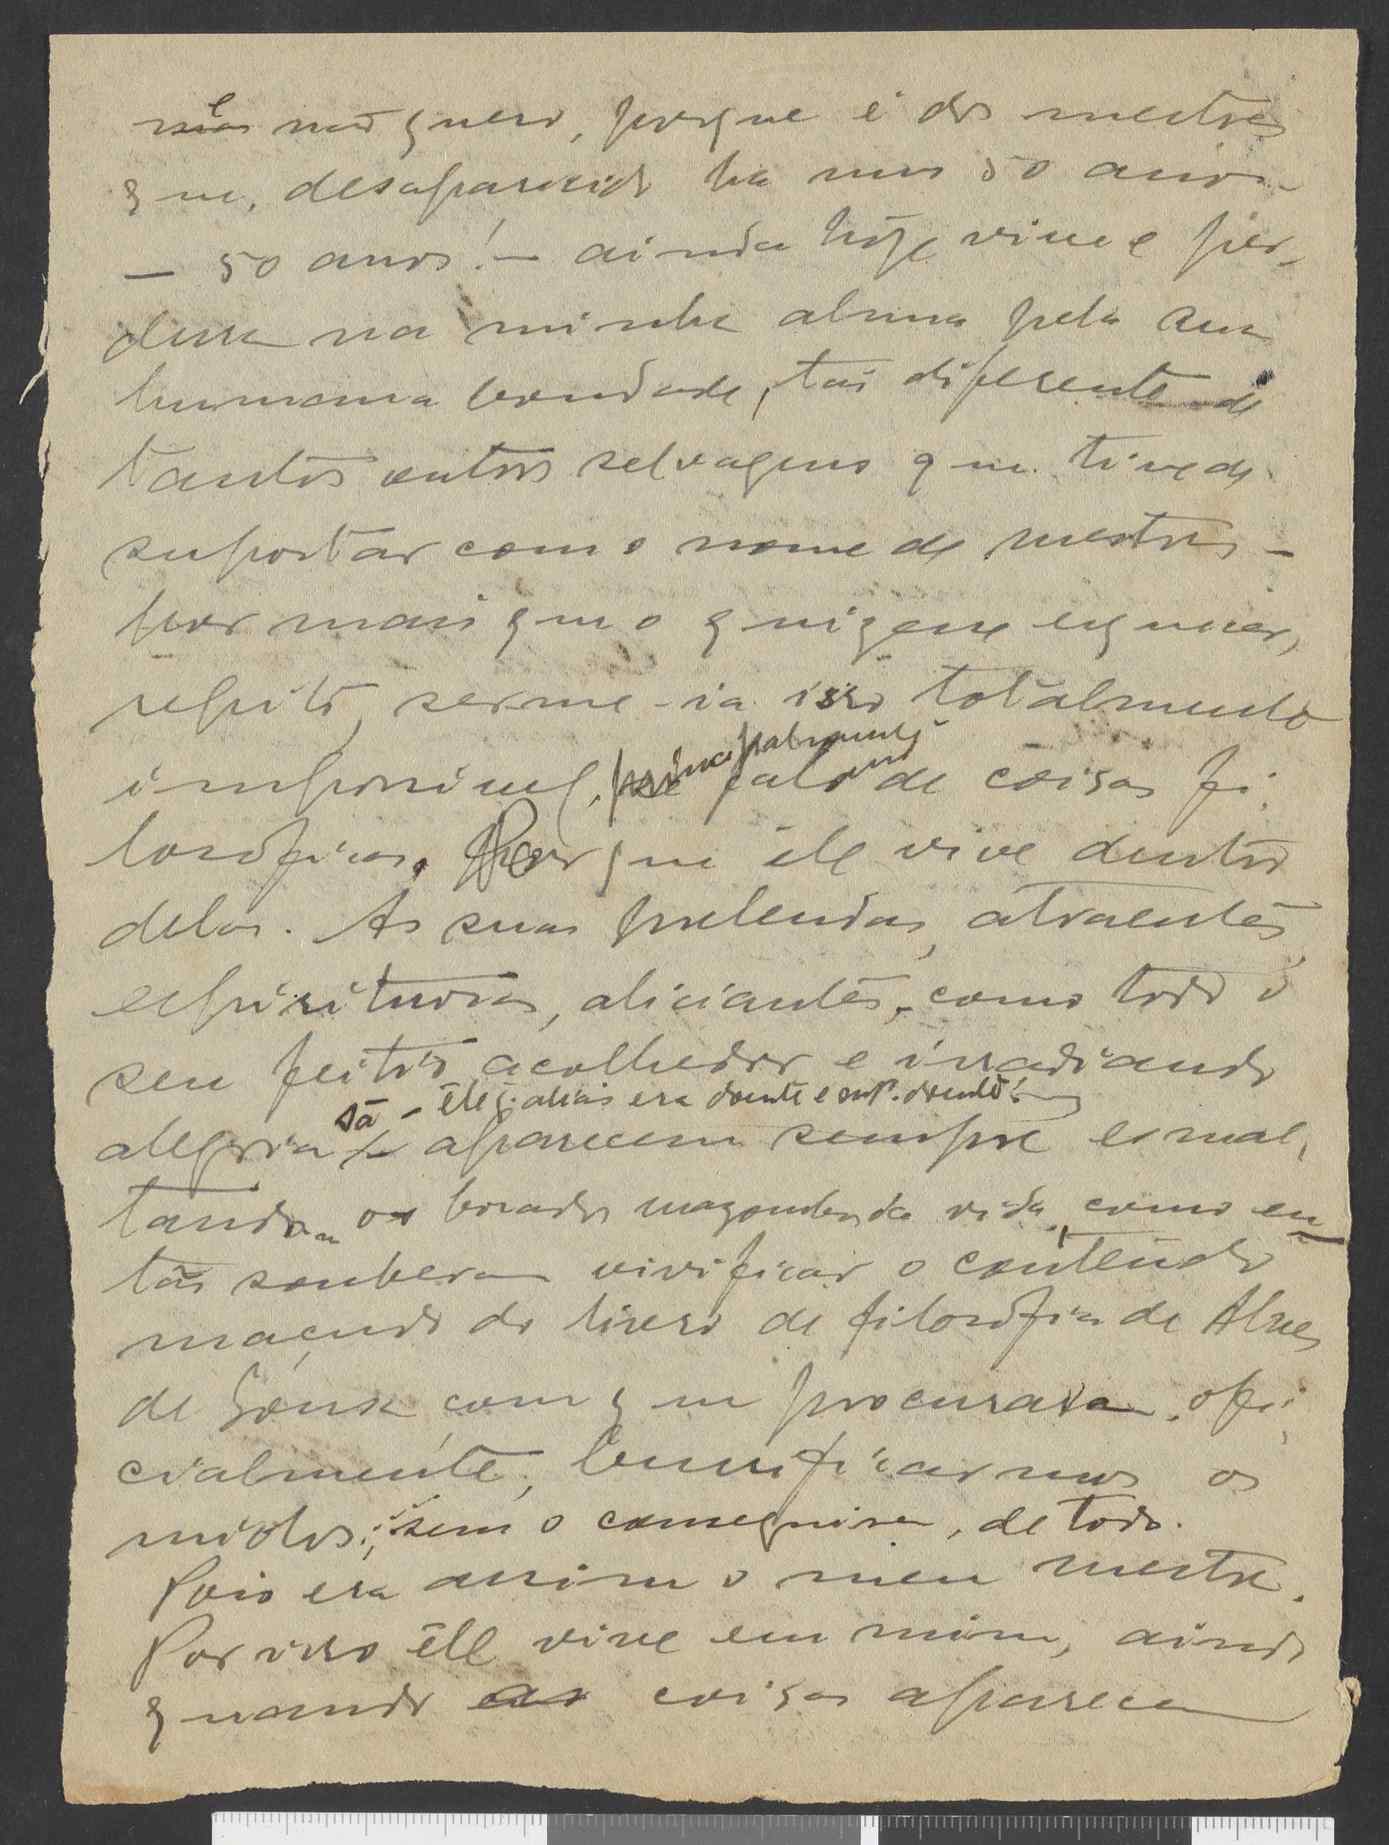 e não quero, porque é dos mestres
que, desaparecido ha uns 50 anos
— 50 anos! — ainda hoje vive e per-
dura na minha alma pela sua
humana bondade, tão diferente de
tantos outros selvagens que tive de
suportar com o nome de mestres —
por mais que o quizesse esquecer,
repito, ser-me-ia isso totalmente
impossivel, principalmente
falando de coisas fi-
losóficas. Porque êle vive dentro
delas. As suas prelendas, atraentes,
espirituosas, aliciantes, como todo o
seu feitio acolhedor e irradiando
sã - êle, aliás era doente e doente! -
alegria aparecem sempre esmal-
tando os bocados da vida, como en-
tão souberam vivificar o conteúdo
maçudo do livro de filosofia de Alves
de Sousa, com que procuravam, ofi-
cialmente, bonificar-nos os
miolos; sem o conseguirem, de todo.
Pois era assim o meu mestre.
Por isso êle vive em mim, ainda
quando as coisas apareçam